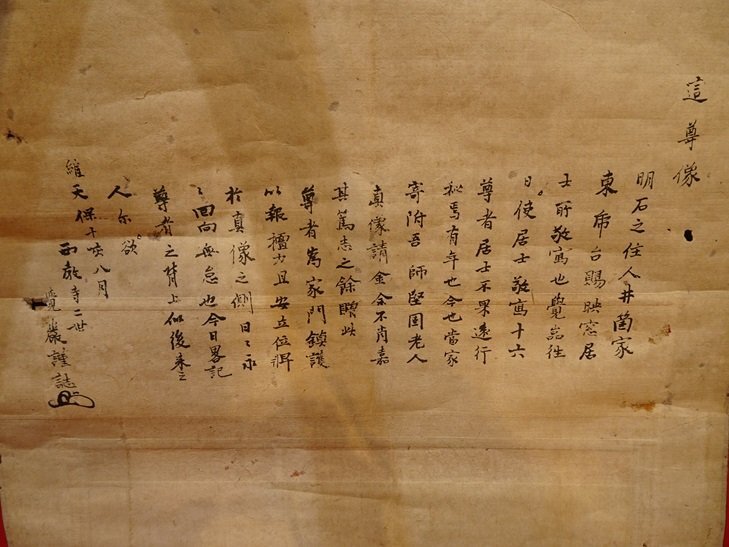 這尊像
明石之住人井筒家
東帝台賜映窓居
士所敬寫也覺岩往
日使居士敬寫十六
尊者居士不果遂行
秘焉有年也今也當家
寄附吾師堅固老人
真像請余余不肖嘉
其篤志之餘贈此
尊者為家門鎮護
以報檀少且安立位牌
於真像之側日〻永
〻回向無怠也今日畧記
尊者之背上似後来之
人尔欲
維天保十 八月
西龍寺二世
覺巌謹誌